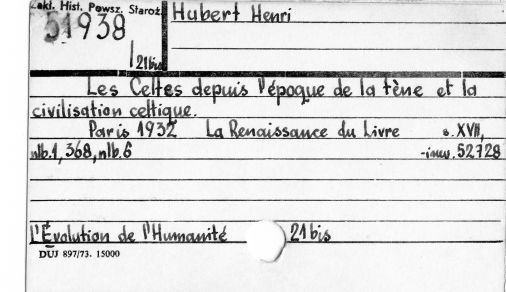 Zakł. Hist. Powsz. Staroż
51938
21bis
Hubert Henri
Les Celtes depuis l'époque de la tène et la
civilisation celtique.
Paris 1932 La Renaissance du Livre s. XVII,
nlb.1, 368, nlb.6 -inw. 52728
L'Évolution de l'Humanité 21 bis
DUJ 897/73. 15000